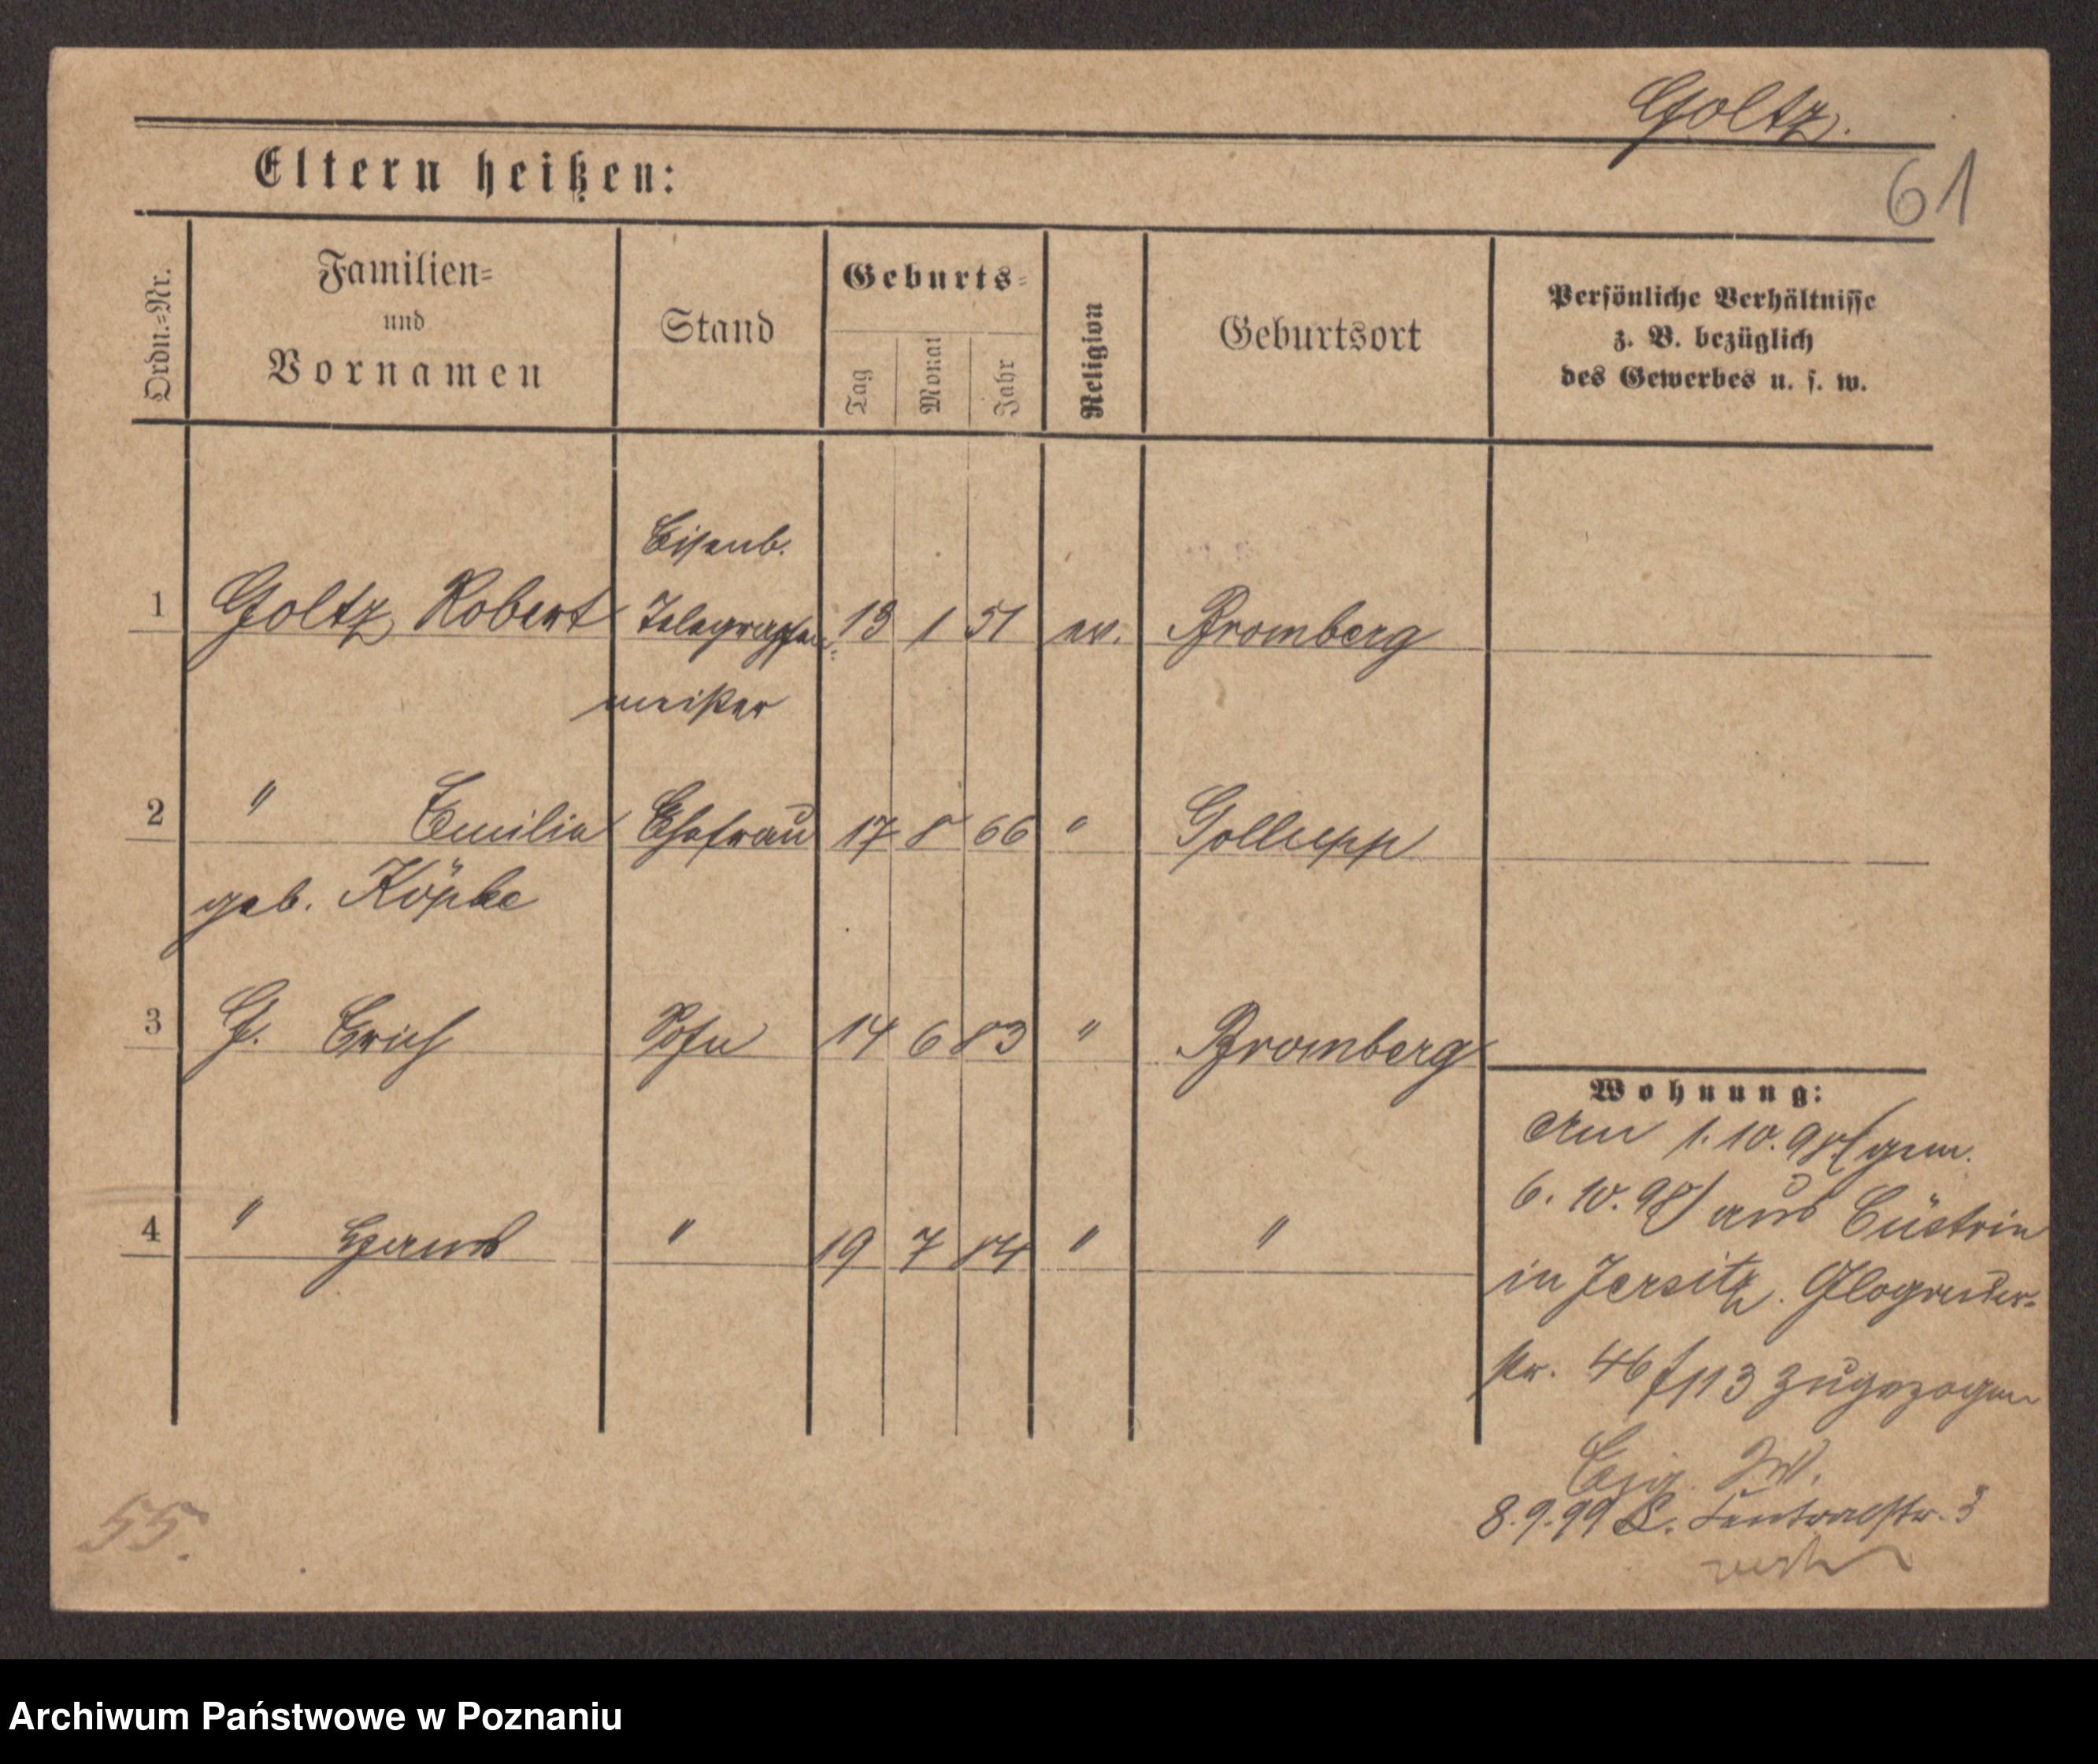 Goltz.
61
Eltern heißen:
Ordn.=Nr.
Familien=
und
Vornamen
Stand
Geburts=
Tag
Monat
Jahr
Religion
Geburtsort
Persönliche Verhältnisse
z. B. bezüglich
des Gewerbes u. s. w.
Eisenb.
1 Goltz Robert Telegrafen= 13 1 51 ev. Bromberg
meister
2 " Emilie Ehefrau 17 8 66 " Gollupp
geb. Köpke
3 G. Erich Sohn 14 6 83 " Bromberg
4 " Hans " 19 7 84 " "
Wohnung:
Am 1.10.98 (gem.
6.10.98) aus Cüstrin
in Jersitz. Glogauer-
str. 46/113 zugezogen
8.9.99 Centralstr. 3
55.
Archiwum Państwowe w Poznaniu